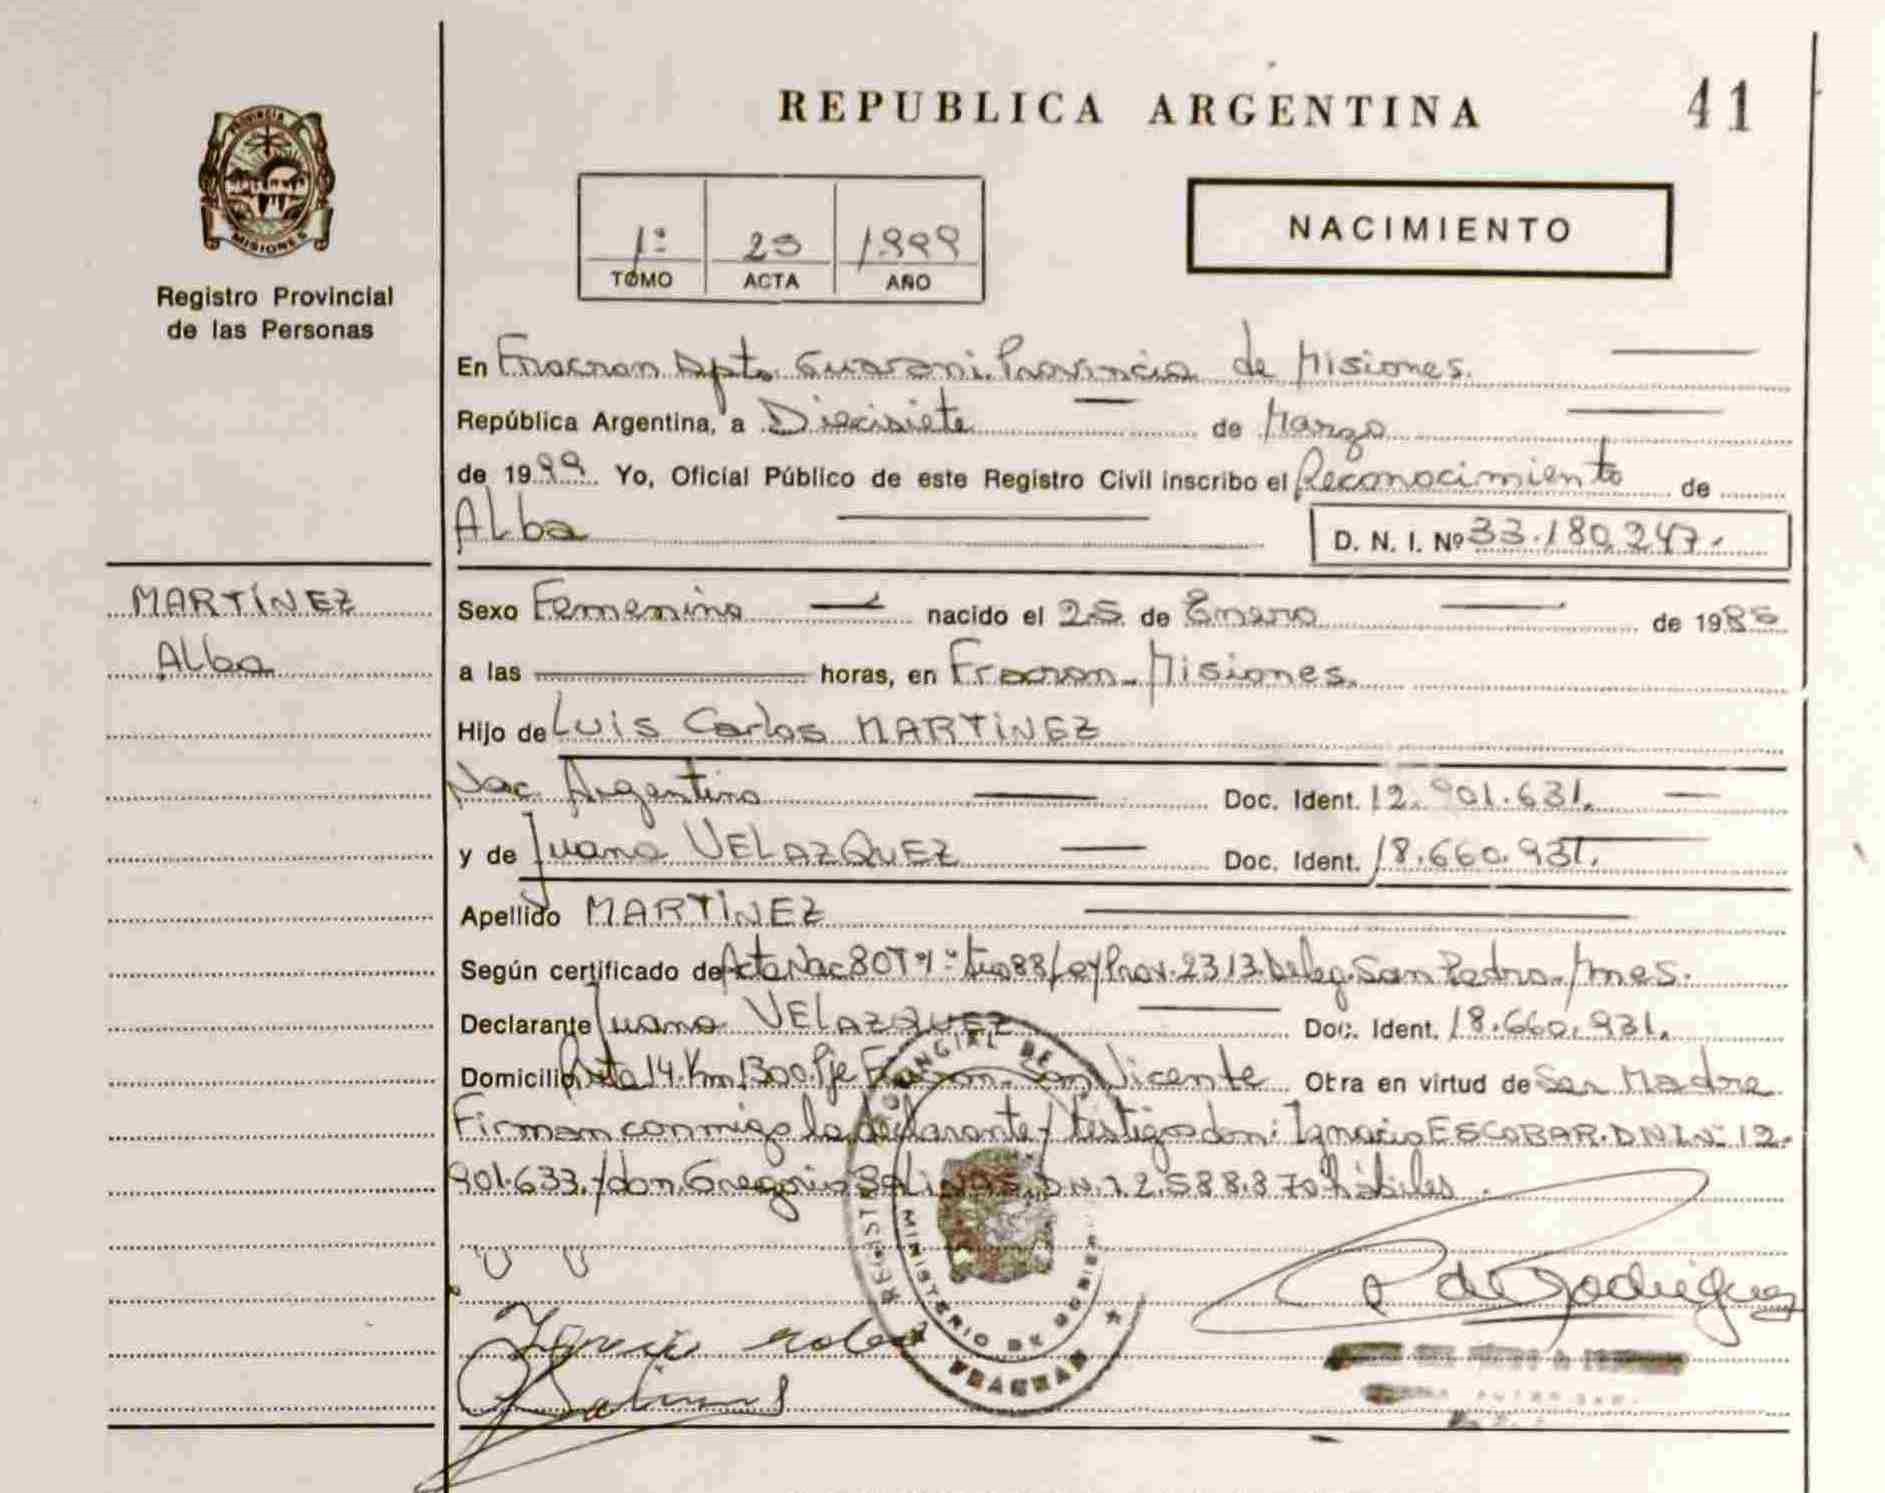 REPUBLICA ARGENTINA 41
PROVINCIA
MISIONES
Registro Provincial
de las Personas
1º 25 1999
TOMO ACTA AÑO
NACIMIENTO
En Fracran Dpto. Guarani. Provincia de Misiones.
República Argentina, a Diecisiete de Marzo
de 1999 Yo, Oficial Público de este Registro Civil inscribo el Reconocimiento de
Alba D. N. I. Nº 33.180.247.
MARTÍNEZ
Alba
Sexo Femenino nacido el 25 de Enero de 198
a las horas, en Fracran - Misiones.
Hijo de Luis Carlos MARTÍNEZ
Nac. Argentino Doc. Ident. 12.901.631.
y de Juana VELAZQUEZ Doc. Ident. 18.660.931.
Apellido MARTÍNEZ
Según certificado de Acta Nac 80 Tº 1º 88 Ley Prov. 2313. Deleg. San Pedro - Mnes.
Declarante Juana VELAZQUEZ Doc. Ident. 18.660.931.
Domicilio Ruta 14. Km 1300. Pje Fracran - San Vicente Otra en virtud de Ser Madre
Firman conmigo la declarante y testigos don: Ignacio ESCOBAR. D.N.I. Nº 12.
901.633. y don Gregorio SALINAS. D.N. 12.588.870 hábiles.
REGISTRO PROVINCIAL DE
MINISTERIO DE GOBIERNO
FRACRAN
de Rodriguez
Salinas